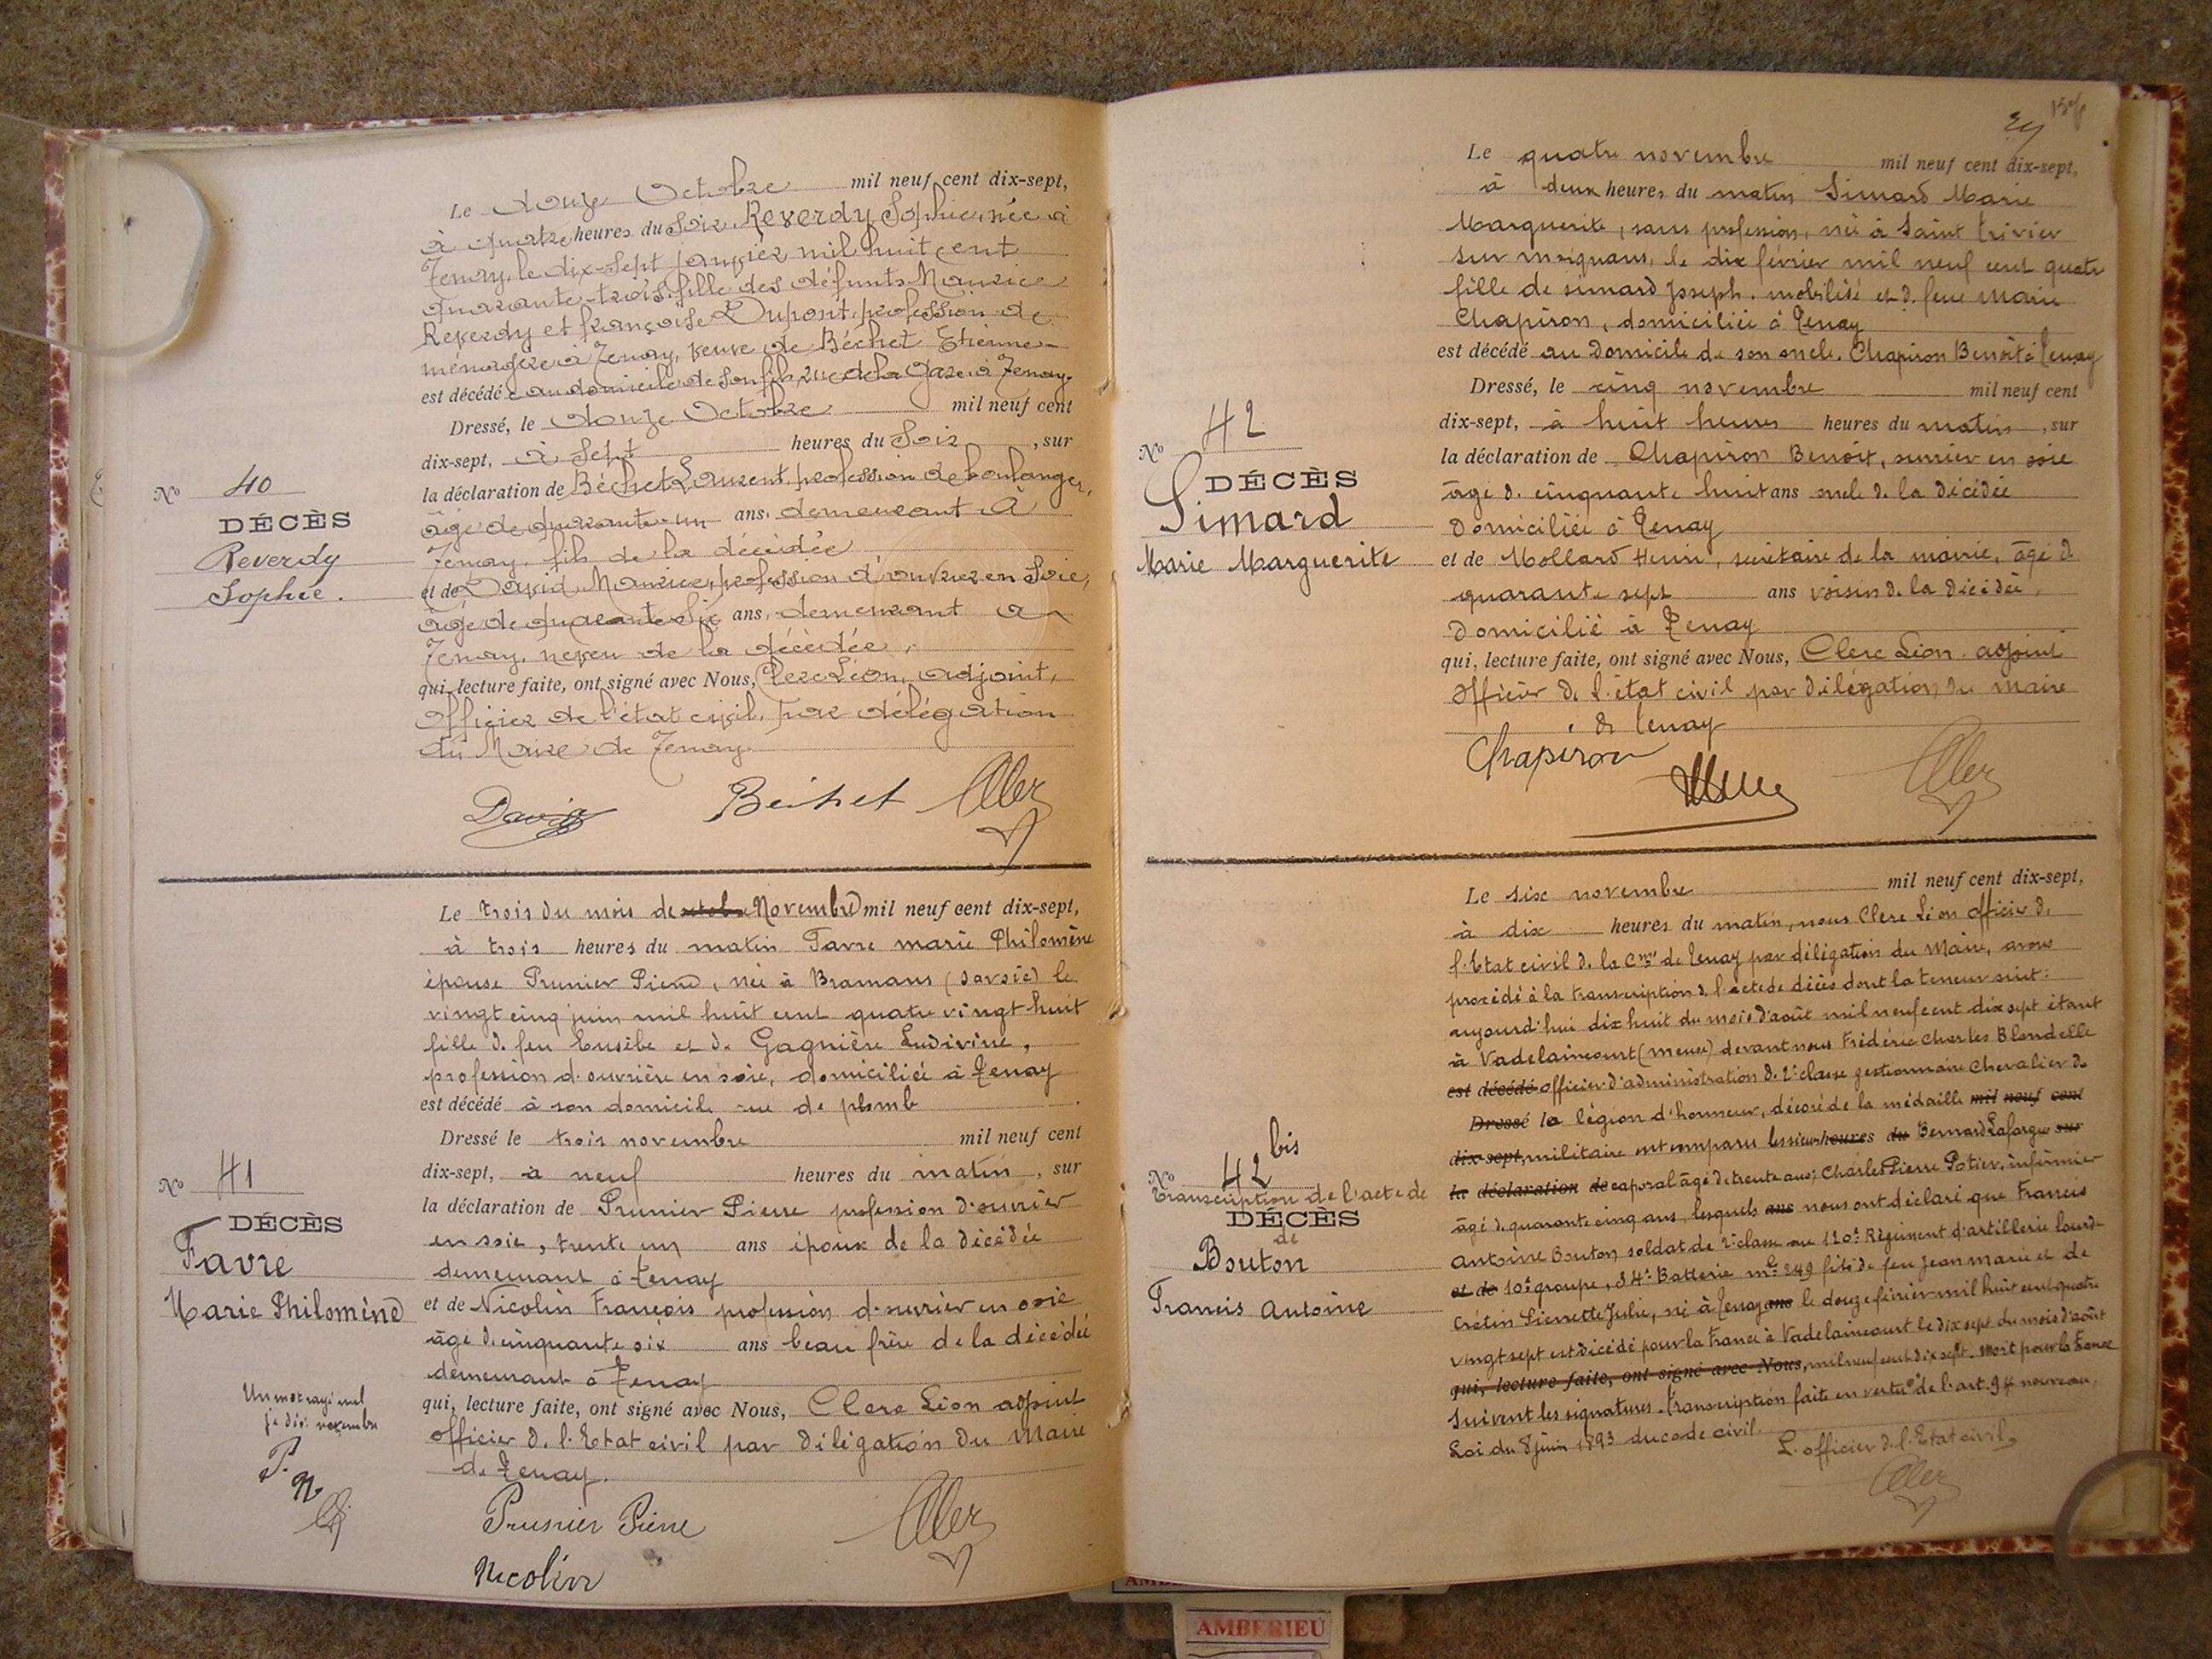 Le douze Octobre mil neuf cent dix-sept,
à quatre heures du Soir, Reverdy Sophie, née à
Tenay, le dix-sept janvier mil huit cent
quarante-trois, fille des défunts Maurice
Reverdy et françoise Dupont, profession de
ménagère à Tenay, veuve de Béchet Etienne
est décédée au domicile de son fils, rue de la Gare à Tenay.
Dressé, le douze Octobre mil neuf cent
dix-sept, à Sept heures du Soir, sur
la déclaration de Béchet Laurent, profession de boulanger,
âgé de quarante-un ans, demeurant à
Tenay, fils de la décédée
et de David Maurice, profession d'ouvrier en Soie,
âgé de quarante-six ans, demeurant à
Tenay, neveu de la décédée,
qui, lecture faite, ont signé avec Nous, Clerc Léon, adjoint,
officier de l'état civil, par délégation
du Maire de Tenay.
No 40
DÉCÈS
Reverdy
Sophie.
David Béchet Clerc
Le trois du mois de octobre Novembre mil neuf cent dix-sept,
à trois heures du matin Favre marie Philomène
épouse Prunier Pierre, née à Bramans (Savoie) le
vingt cinq juin mil huit cent quatre vingt huit
fille de feu Eusèbe et de Gagnière Ludivine,
profession d'ouvrière en soie, domiciliée à Tenay
est décédé à son domicile rue de plomb
Dressé le trois novembre mil neuf cent
dix-sept, à neuf heures du matin, sur
la déclaration de Prunier Pierre profession d'ouvrier
en soie, trente un ans époux de la décédée
demeurant à Tenay
et de Nicolin François profession d'ouvrier en soie
âgé de cinquante six ans beau frère de la décédée
demeurant à Tenay
qui, lecture faite, ont signé avec Nous, Clerc Léon adjoint
officier de l'Etat civil par délégation du Maire
de Tenay.
No 41
DÉCÈS
Favre
Marie Philomène
Un mot rayé nul
je dis: novembre
P.
N
Prunier Pierre Clerc
Nicolin
29
Le quatre novembre mil neuf cent dix-sept,
à deux heures du matin Simard Marie
Marguerite, sans profession, née à Saint Trivier
sur moignans, le dix février mil neuf cent quatre
fille de simard Joseph, mobilisé et de feue Marie
Chapiron, domiciliée à Tenay
est décédé au domicile de son oncle, Chapiron Benoit à Tenay
Dressé, le cinq novembre mil neuf cent
dix-sept, à huit heures heures du matin, sur
la déclaration de Chapiron Benoit, ouvrier en soie
âgé de cinquante huit ans oncle de la décédée
domiciliée à Tenay
et de Mollard Henri, secrétaire de la mairie, âgé de
quarante sept ans voisin de la décédée,
domicilié à Tenay
qui, lecture faite, ont signé avec Nous, Clerc Léon adjoint
officier de l'état civil par délégation du maire
de Tenay
No 42
DÉCÈS
Simard
Marie Marguerite
Chapiron Clerc
Le six novembre mil neuf cent dix-sept,
à dix heures du matin, nous Clerc Léon officier de
l'Etat civil de la Cne de Tenay par délégation du Maire, avons
procédé à la transcription de l'acte de décès dont la teneur suit:
aujourd'hui dix huit du mois d'août mil neuf cent dix sept étant
à Vadelaincourt (Meuse) devant nous Frédéric Charles Blondelle
est décédé officier d'administration de 2e classe gestionnaire Chevalier de
Dressé la légion d'honneur, décoré de la médaille mil neuf cent
dix-sept, militaire ont comparu les sieurs heures du Bernard Lafargue sur
la déclaration de caporal âgé de trente ans; Charles Pierre Potier, infirmier
âgé de quarante cinq ans, lesquels ans nous ont déclaré que Francis
Antoine Bouton soldat de 2e classe au 120e Régiment d'artillerie lourde
et de 10e groupe, 34e Batterie mle 249 fils de feu Jean Marie et de
Crétin Pierrette Julie, né à Tenay ans le douze février mil huit cent quatre
vingt sept est décédé pour la France à Vadelaincourt le dix sept du mois d'août
qui, lecture faite, ont signé avec Nous, mil neuf cent dix sept. Mort pour la France
Suivent les signatures. Transcription faite en vertu de l'art. 94 nouveau,
Loi du 8 juin 1893 du code civil.
L'officier de l'Etat civil.
Clerc
No 42 bis
Transcription de l'acte de
DÉCÈS
de
Bouton
Francis Antoine
AMBERIEU